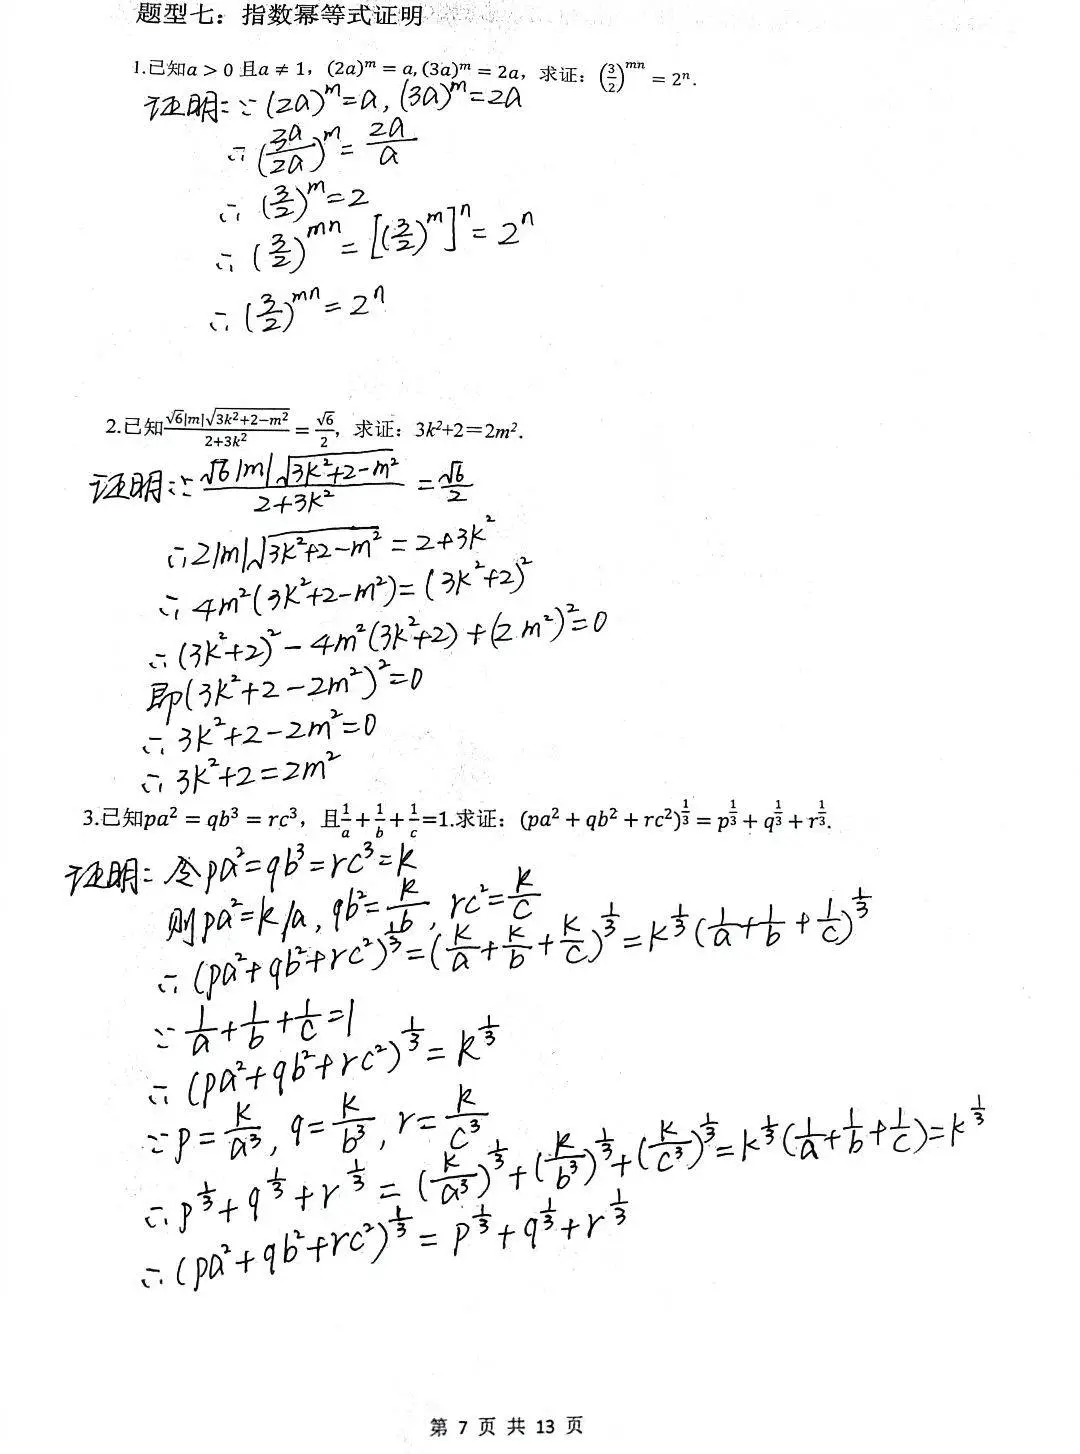 题型七：指数幂等式证明
1.已知a > 0 且a ≠ 1，(2a)^m = a, (3a)^m = 2a，求证：(3/2)^{mn} = 2^n.
证明：∵ (2a)^m=a, (3a)^m=2a
∴ (3a/2a)^m = 2a/a
∴ (3/2)^m=2
∴ (3/2)^{mn} = [(3/2)^m]^n = 2^n
∴ (3/2)^{mn} = 2^n
2.已知 √6|m|√(3k²+2−m²)/(2+3k²) = √6/2，求证：3k²+2＝2m².
证明：∵ √6|m|√(3k²+2−m²)/(2+3k²) = √6/2
∴ 2|m|√(3k²+2−m²) = 2+3k²
∴ 4m²(3k²+2−m²) = (3k²+2)²
∴ (3k²+2)² − 4m²(3k²+2) + (2m²)²=0
即(3k²+2−2m²)²=0
∴ 3k²+2−2m²=0
∴ 3k²+2=2m²
3.已知pa² = qb³ = rc³，且1/a + 1/b + 1/c =1.求证：(pa² + qb² + rc²)^{1/3} = p^{1/3} + q^{1/3} + r^{1/3}.
证明：令pa²=qb³=rc³=k
则pa²=k/a, qb²=k/b, rc²=k/c
∴ (pa²+qb²+rc²)^{1/3} = (k/a + k/b + k/c)^{1/3} = k^{1/3}(1/a + 1/b + 1/c)^{1/3}
∵ 1/a + 1/b + 1/c =1
∴ (pa²+qb²+rc²)^{1/3} = k^{1/3}
∵ p = k/a³, q= k/b³, r= k/c³
∴ p^{1/3} + q^{1/3} + r^{1/3} = (k/a³)^{1/3} + (k/b³)^{1/3} + (k/c³)^{1/3} = k^{1/3}(1/a + 1/b + 1/c) = k^{1/3}
∴ (pa²+qb²+rc²)^{1/3} = p^{1/3} + q^{1/3} + r^{1/3}
第 7 页 共 13 页